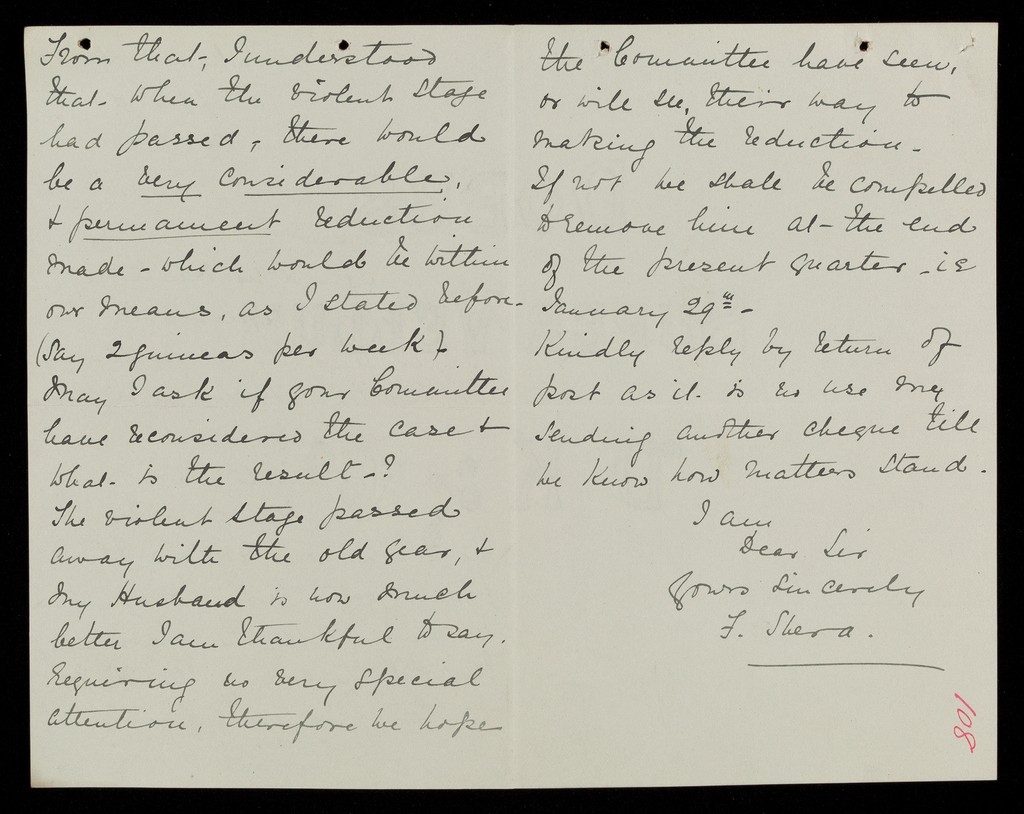 From that, I understood
that when the violent stage
had passed, there would
be a very considerable,
& permanent reduction
made - which would be within
our means, as I stated before -
(say 2 guineas per week).
May I ask if your Committee
have reconsidered the case &
what is the result - ?
The violent stage passed
away with the old year, &
my Husband is now much
better I am thankful to say.
Requiring no very special
attention, therefore we hope
the Committee have seen,
or will see, their way to
making the reduction -
If not we shall be compelled
to remove him at the end
of the present quarter - ie
January 29th -
Kindly reply by return of
post as it is no use my
sending another cheque till
we know how matters stand -
I am
Dear Sir
Yours sincerely
F. Shera.
108